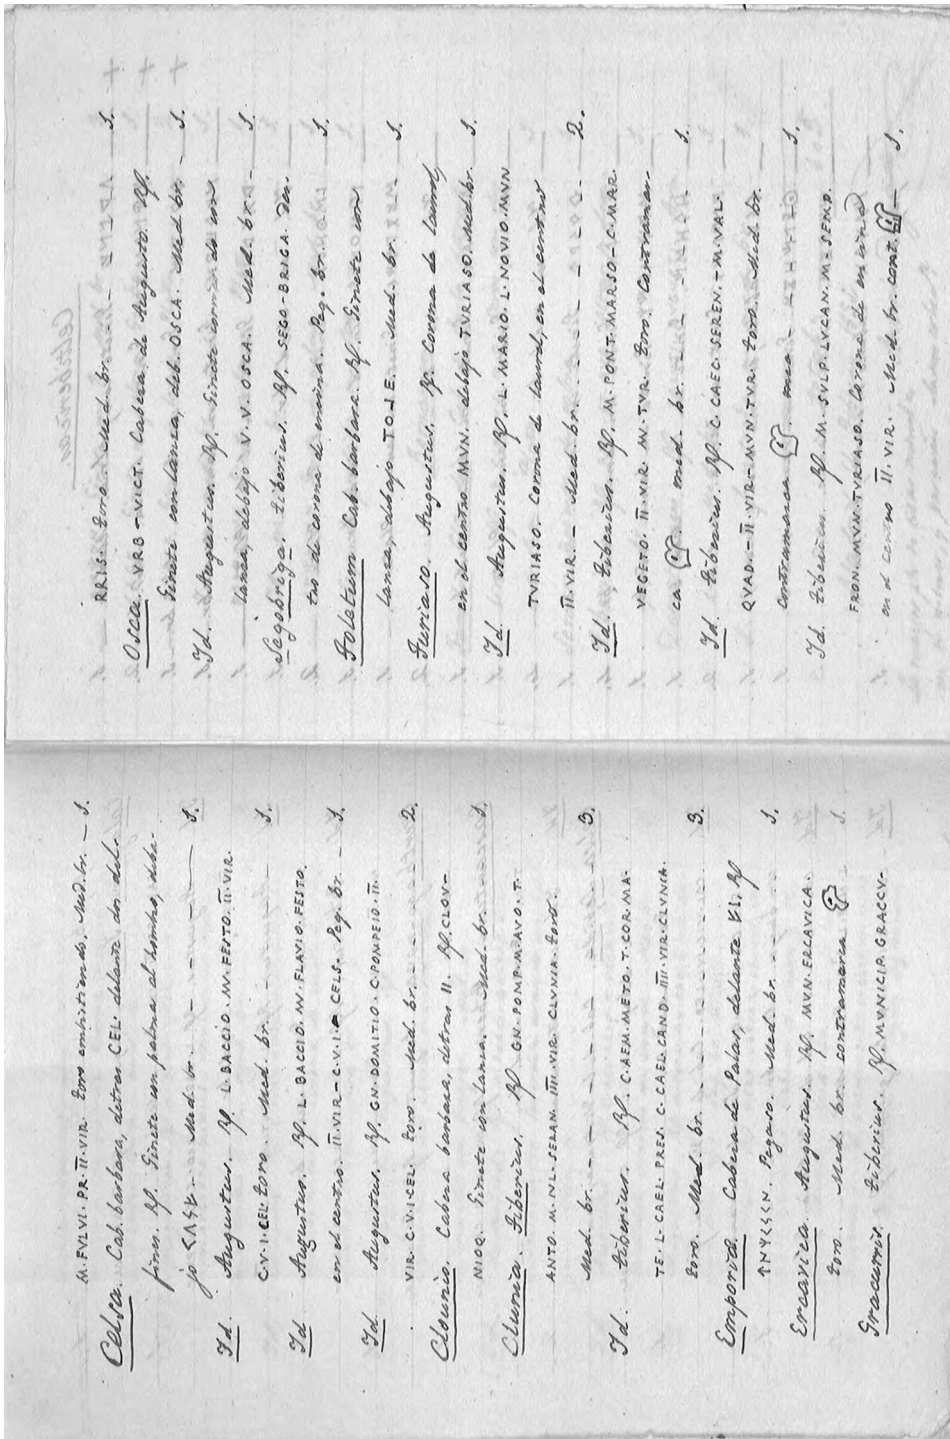 M. FVLVI. PR. II. VIR. Toro embistiendo. Med. br. — 1.
Celsa. Cab. barbara, detras CEL. delante dos del-
fines. Rf. Ginete con palma al hombro, deba-
jo Med. br. — 1.
Id. Augustus. Rf. L. BACCIO. MN. FESTO. II. VIR.
C.V.I. CEL. toro. Med. br. 1.
Id Augustus. Rf. L. BACCIO. MN. FLAVIO. FESTO.
en el centro II. VIR - C.V.I. CELS. Peq. br. — 1.
Id Augustus. Rf. GN. DOMITIO. C. POMPEIO. II.
VIR. C.V.I. CEL. toro. Med. br. — 2.
Clounia. Cabeza barbara, detras II. Rf. CLOV-
NIOQ. Ginete con lanza. Med. br. 1.
Clunia. Tiberius. Rf GN. POMP. M. AVO. T.
ANTO. M. NL. SERAN. IIII. VIR. CLVNIA. toro.
Med. br. — 3.
Id. tiberius. Rf. C. AEM. METO. T. COR. MA-
TE. L. CAEL. PRES. C. CAEL. CAND. IIII. VIR. CLVNIA.
toro. Med. br. 3.
Emporia. Cabeza de Palas, delante Rf
Pegaso. Med. br. 1.
Ercavica. Augustus. Rf. MVN. ERCAVICA.
toro. Med. br. contramarca 1.
Gracurris. tiberius. Rf. MVNICIP. GRACCV-
RRIS. toro. Med. br. — 1.
Osca. VRB - VICT. Cabeza de Augusto. Rf.
Ginete con lanza, deb. OSCA. Med br. — 1.
Id. Augustus. Rf. Ginete corriendo con
lanza, debajo V. V. OSCA. Med. br. — 1.
Segobriga. tiberius. Rf. SEGO-BRIGA. den
tro de corona de encina. Peq. br. 1.
Toletum Cab. barbara. Rf. Ginete con
lanza, debajo TOLE. Med. br. 1.
Turiaso. Augustus. Rf. Corona de laurel,
en el centro MVN. debajo TVRIASO. Med. br. 1.
Id Augustus. Rf. L. MARIO. L. NOVIO. MVN
TVRIASO. Corona de laurel, en el centro
II. VIR. — Med. br. — 2.
Id. tiberius. Rf. M. PONT. MARSO - C. MAR.
VEGETO. II. VIR M. TVR. toro. Contramar-
ca med. br. — 1.
Id tiberius. Rf. C. CAEC. SEREN. - M. VAL.
QVAD. - II. VIR - MVN. TVR. toro. Med. br.
contramarca 1.
Id. tiberius. Rf M. SVLP. LVCAN. M - SEMP.
FRON. MVN. TVRIASO. Corona de encina
en el centro II. VIR. Med. br. cont. — 1.